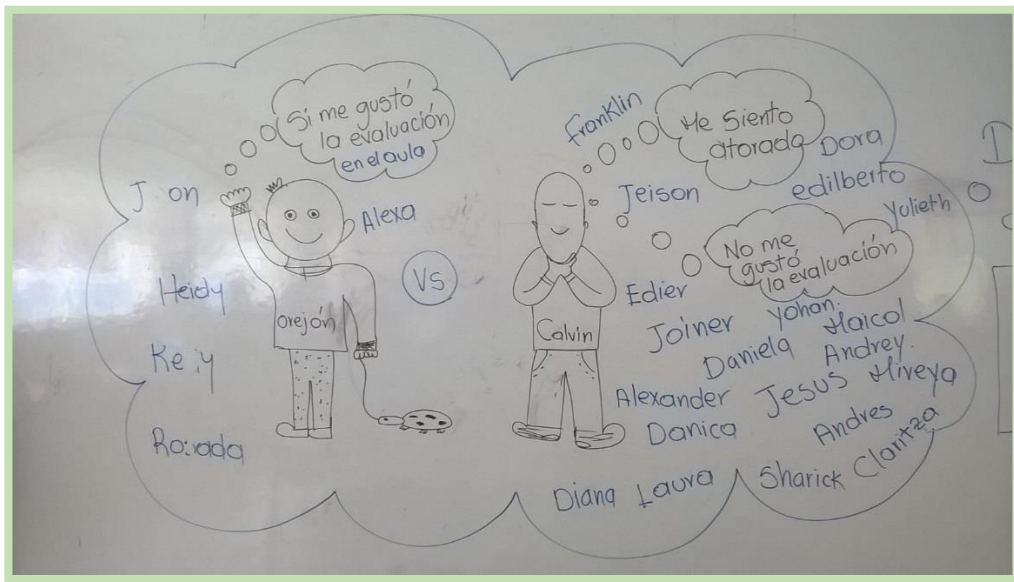 Si me gustó
la evaluación
en el aula
Alexa
Heidy
orejón
Vs
Franklin
Me siento
atorada
Dora
Jeison
edilberto
Yulieth
No me
gustó
la evaluación
Edier
Calvin
Joiner
Yohan.
Maicol
Daniela
Andrey.
Alexander
Jesus
Mireya
Danica
Andres
Claritza
Diana
Laura
Sharick
D